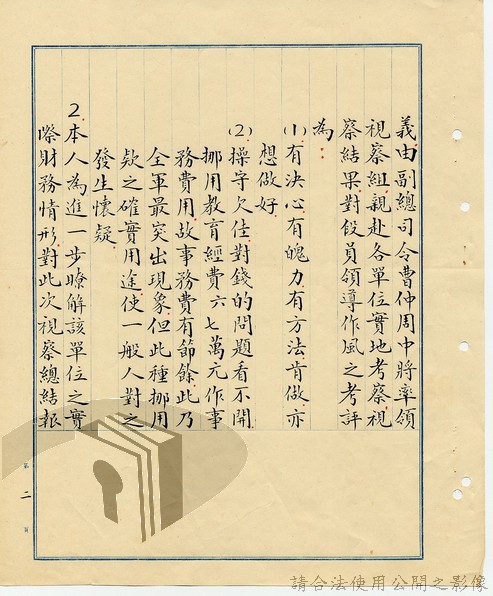 義由副總司令曹仲周中將率領
視察組親赴各單位實地考察視
察結果對伋員領導作風之考評
為：
⑴有決心有魄力有方法肯做亦
想做好
⑵操守欠佳對錢的問題看不開
挪用教育經費六七萬元作事
務費用故事務費有節餘此乃
全軍最突出現象但此種挪用
欵之確實用途使一般人對之
發生懷疑
2.本人為進一步瞭解該單位之實
際財務情形對此次視察總結報
第二頁
請合法使用公開之影像